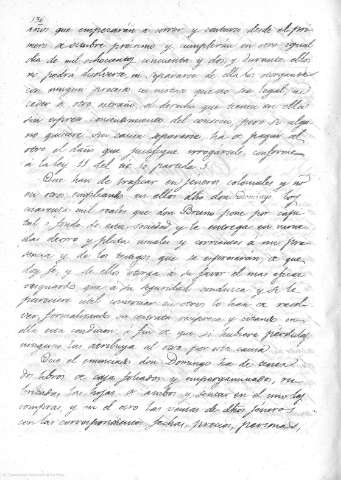 130
años que empezarán a correr y contarse desde el primero
de octubre próximo y cumplirán en otro igual
día de mil ochocientos cincuenta y dos y durante ellos
no podrá disolverse ni separarse de ella los otorgantes
con ningún pretexto ni motivo que no sea legal, ni
ceder a otro extraño el derecho que tienen en ella
sin espreso consentimiento del consocio, pero si alguno
quisiere sin causa separarse, ha de pagar al
otro el daño que justifique irrogarsele, conforme
a la ley 11 del tit. 10 partida 5.
Que han de traficar en jeneros coloniales y no
en otros empleando en ellos dicho don Domingo los
cuarenta mil reales que don Bruno pone por capital
i fondo de esta sociedad y le entrega en monedas
de oro y plata usuales y corrientes a mi presencia
y de los testigos que se espresarán, de que
doy fe, y de ellos otorga a su favor el mas eficaz
resguardo que a su seguridad conduzca y si le
pareciere util comerciar en otros lo han de resolver
formalizando su escrito
ella esta condicion a fin de que si hubiere pérdidas
ninguno las atribuya al otro por esta causa.
Que el enunciado don Domingo ha de tener
dos libros de caja foliados y empergaminados, rubricadas
las hojas de ambos y sentar en el uno las
compras, y en el otro las ventas de dichos jeneros
con las correspondientes fechas, precios, personas,